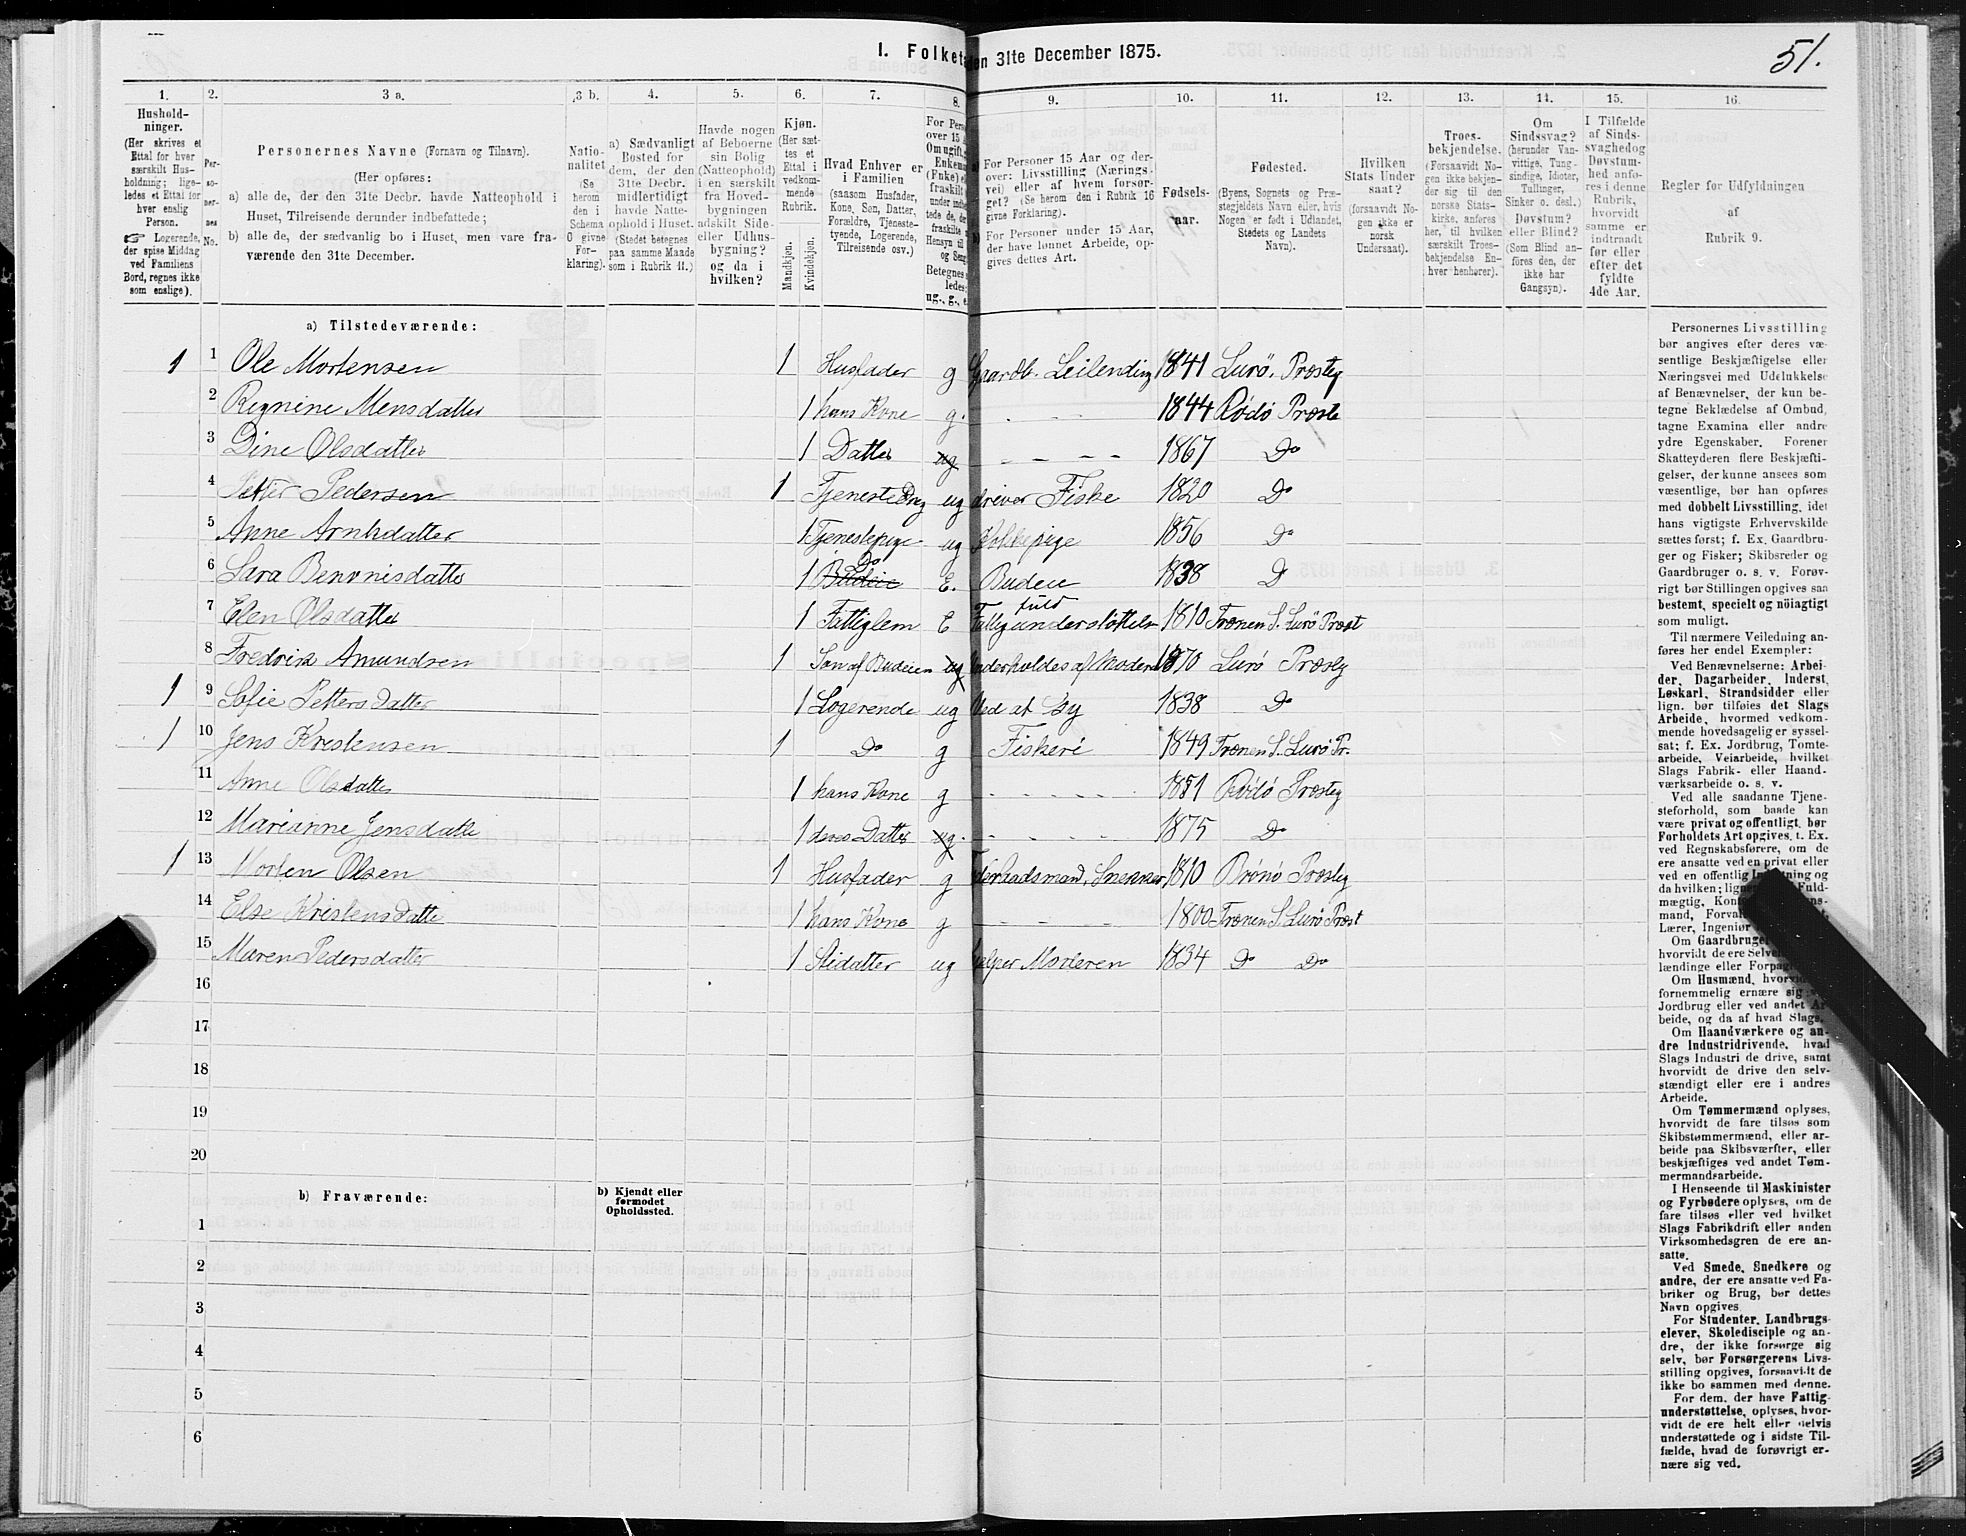 51.
1. Folket
den 31te December 1875.
1. 2. 3 a. 3 b. 4. 5. 6. 7. 8. 9. 10. 11. 12. 13. 14. 15. 16.
Hushold-
ninger.
(Her skrives et
Ettal for hver
særskilt Hus-
holdning; lige-
ledes et Ettal for
hver enslig
Person.
☞ Logerende,
der spise Middag
ved Familiens
Bord, regnes ikke
som enslige).
Per-
so-
ner-
nes
No.
Personernes Navne (Fornavn og Tilnavn).
(Her opføres:
a) alle de, der den 31te Decbr. havde Natteophold i
Huset, Tilreisende derunder indbefattede;
b) alle de, der sædvanlig bo i Huset, men vare fra-
værende den 31te December.
Natio-
nalitet
(Se
herom
den i
Schema
0 givne
For-
klaring).
a) Sædvanligt
Bosted for
dem, der den
31te Decbr.
midlertidigt
havde Natte-
ophold i Huset.
(Stedet betegnes
paa samme Maade
som i Rubrik 11.)
Havde nogen
af Beboerne
sin Bolig
(Natteophold)
i en særskilt
fra Hoved-
bygningen
adskilt Side-
eller Udhus-
bygning?
og da i
hvilken?
Kjøn.
(Her sæt-
tes et
Ettal i
vedkom-
mende
Rubrik.
Mandkjøn.
Kvindekjøn.
Hvad Enhver er
i Familien
(saasom Husfader,
Kone, Søn, Datter,
Forældre, Tjeneste-
tyende, Logerende,
Tilreisende osv.)
For Pers
over 15 A
Om ugift, g
Enkema
(Enke) e
fraskilt
under indbe
tede de, d
fraskilte
Hensyn til
og Seng
Betegnes
ledes:
ug., g., e.
a) For Personer 15 Aar og der-
over: Livsstilling (Nærings-
vei) eller af hvem forsør-
get? (Se herom den i Rubrik 16
givne Forklaring).
b) For Personer under 15 Aar,
der have lønnet Arbeide, op-
gives dettes Art.
Fødsels-
aar.
Fødested.
(Byens, Sognets og Præ-
stegjeldets Navn eller, hvis
Nogen er født i Udlandet,
Stedets og Landets
Navn).
Hvilken
Stats Under
saat?
(forsaavidt No-
gen ikke er
norsk
Undersaat).
Troes-
bekjendelse.
(Forsaavidt No-
gen ikke bekjen-
der sig til den
norske Stats-
kirke, anføres
her, til hvilken
særskilt Troes-
bekjendelse En-
hver henhører).
Om
Sindssvag?
(herunder Van-
vittige, Tung-
sindige, Idioter,
Tullinger,
Sinker o. desl.)
Døvstum?
eller Blind?
(Som Blind an-
føres den, der
ikke har
Gangsyn).
I Tilfælde
af Sinds-
svaghed og
Døvstum-
hed anfø-
res i denne
Rubrik,
hvorvidt
samme er
indtraadt
før eller
efter det
fyldte
4de Aar.
Regler for Udfyldningen
af
Rubrik 9.
a) Tilstedeværende:
1 1 Ole Mortensen 1 Husfader g Gaardb. Leilending 1841 Lurö. Præsteg
2 Regnine Mensdatter 1 hans Kone g. . - - - 1844 Rödö Præste
3 Dine Olsdatter 1 Datter ug - - - - 1867 Do
4 Petter Pedersen 1 Tjenestedreng ug driver Fiske 1820 Do
5 Anne Arntsdatter 1 Tjenestepige ug Kokkepige 1856 Do
6 Sara Benonisdatter 1 Budeie Do E. Budeie 1838 Do
7 Elen Olsdatter 1 Fattiglem E Fattigunderstöttelse fuld 1810 Trænen S. Lurö Præst
8 Fredrik Amundsen 1 Søn af Budeien ug Underholdes af Moderen 1870 Lurö Præsteg
1 9 Sofie Pettersdatter 1 Logerende ug Ved at Sy 1838 Do
1 10 Jens Kristensen 1 Do g Fiskeri 1849 Trænen S. Lurö Pr.
11 Anne Olsdatter 1 hans Kone g - - - - 1851 Rödö Præsteg
12 Marianne Jensdatter 1 deres Datter ug. - - - - 1875 Do
1 13 Morten Olsen 1 Husfader g Föderaadsmand, Snekker 1810 Brönö Præsteg
14 Else Kristensdatter 1 hans Kone g - - - 1800 Trænen S. Lurö Præst
15 Maren Pedersdatter 1 Stedatter ug hjelper Moderen 1834 Do Do
16
17
18
19
20
b) Fraværende:
b) Kjendt eller
formodet
Opholdssted.
1
2
3
4
5
6
Personernes Livsstilling
bør angives efter deres væ-
sentlige Beskjæftigelse eller
Næringsvei med Udelukkelse
af Benævnelser, der kun be-
tegne Beklædelse af Ombud,
tagne Examina eller andre
ydre Egenskaber. Forener
Skatteyderen flere Beskjæfti-
gelser, der kunne ansees som
væsentlige, bør han opføres
med dobbelt Livsstilling, idet
hans vigtigste Erhvervskilde
sættes først; f. Ex. Gaardbru-
ger og Fisker; Skibsreder og
Gaardbruger o. s. v. Forøv-
rigt bør Stillingen opgives saa
bestemt, specielt og nöiagtigt
som muligt.
Til nærmere Veiledning an-
føres her endel Exempler:
Ved Benævnelserne: Arbei-
der, Dagarbeider, Inderst,
Løskarl, Strandsidder eller
lign. bør tilføies det Slags
Arbeide, hvormed vedkom-
mende hovedsagelig er syssel-
sat; f. Ex. Jordbrug, Tomte-
arbeide, Veiarbeide, hvilket
Slags Fabrik- eller Haand-
værksarbeide o. s. v.
Ved alle saadanne Tjene-
steforhold, som baade kan
være privat og offentligt, bør
Forholdets Art opgives, t. Ex.
ved Regnskabsførere, om de
ere ansatte ved en privat eller
ved en offentlig Indretning og
da hvilken; lign Fuld-
mægtig, Kont ns-
mand, Forval
Lærer, Ingeniør
Om Gaardbruger
hvorvidt de ere Selvei
lændinge eller Forpag
Om Husmænd, hvorvid
fornemmelig ernære sig
Jordbrug eller ved andet Ar-
beide, og da af hvad Slags.
Om Haandværkere og an-
dre Industridrivende, hvad
Slags Industri de drive, samt
hvorvidt de drive den selv-
stændigt eller ere i andres
Arbeide.
Om Tømmermænd oplyses,
hvorvidt de fare tilsøs som
Skibstømmermænd, eller ar-
beide paa Skibsværfter, eller
beskjæftiges ved andet Tøm-
mermandsarbeide.
I Henseende til Maskinister
og Fyrbødere oplyses, om de
fare tilsøs eller ved hvilket
Slags Fabrikdrift eller anden
Virksomhedsgren de ere an-
satte.
Ved Smede, Snedkere og
andre, der ere ansatte ved Fa-
briker og Brug, bør dettes
Navn opgives
For Studenter, Landbrugs-
elever, Skoledisciple og an-
dre, der ikke forsørge sig
selv, bør Forsørgerens Livs-
stilling opgives, forsaavidt de
ikke bo sammen med denne.
For dem, der have Fattig-
understøttelse, oplyses, hvor-
vidt de ere helt eller delvis
understøttede og i sidste Til-
fælde, hvad de forøvrigt er-
nære sig ved.